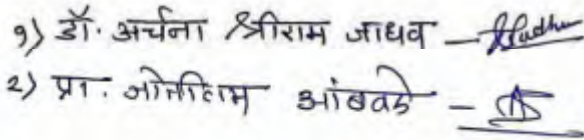 १) डॉ. अर्चना श्रीराम जाधव -
२) प्रा. आंबवडे -